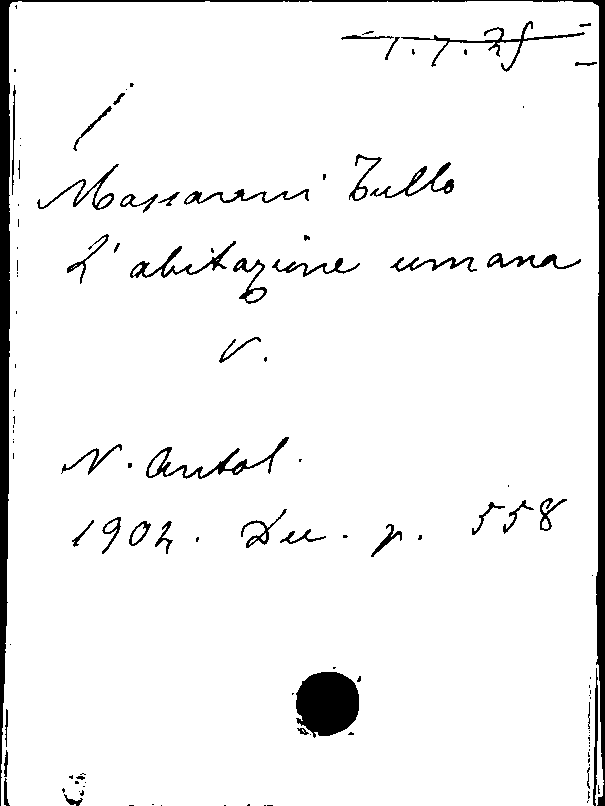 1.7.25
Massarani Tullo
L'abitazione umana
V.
N. Antol.
1902. Dec. p. 558